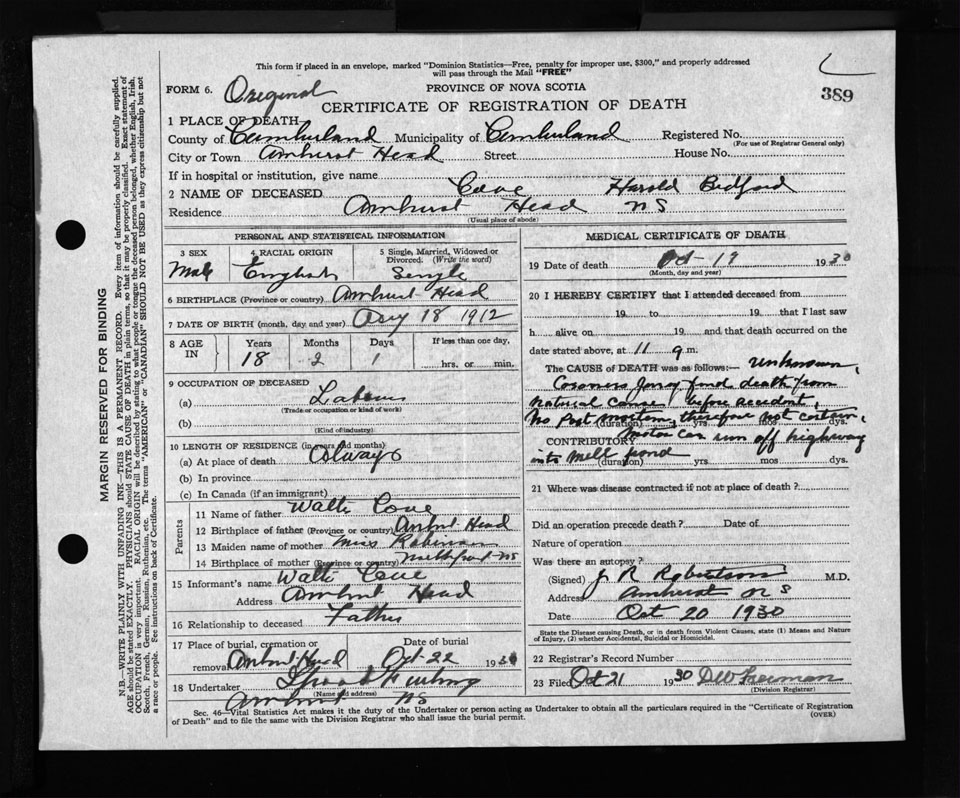 This form if placed in an envelope, marked "Dominion Statistics—Free, penalty for improper use, $300," and properly addressed
will pass through the Mail "FREE"
389
FORM 6. Original PROVINCE OF NOVA SCOTIA
CERTIFICATE OF REGISTRATION OF DEATH
1 PLACE OF DEATH
County of Cumberland Municipality of Cumberland Registered No.
(For use of Registrar General only)
City or Town Amherst Head Street House No.
If in hospital or institution, give name
2 NAME OF DECEASED Cove Harold Bedford
Residence Amherst Head NS
(Usual place of abode)
PERSONAL AND STATISTICAL INFORMATION
3 SEX 4 RACIAL ORIGIN 5 Single, Married, Widowed or
Divorced. (Write the word)
Male English Single
6 BIRTHPLACE (Province or country) Amherst Head
7 DATE OF BIRTH (month, day and year) Aug 18 1912
8 AGE IN Years Months Days If less than one day,
18 2 1 hrs. or min.
9 OCCUPATION OF DECEASED
(a) Laborer
(Trade or occupation or kind of work)
(b)
(Kind of industry)
10 LENGTH OF RESIDENCE (in years and months)
(a) At place of death Always
(b) In province
(c) In Canada (if an immigrant)
Parents
11 Name of father Cove
12 Birthplace of father (Province or country) Amherst Head
13 Maiden name of mother Miss Robinson
14 Birthplace of mother (Province or country) NS
15 Informant's name Cove
Address Amherst Head
16 Relationship to deceased Father
17 Place of burial, cremation or removal Amherst Head Date of burial Oct 22 1930
18 Undertaker
(Name and address)
Amherst NS
MEDICAL CERTIFICATE OF DEATH
19 Date of death Oct - 1930
(Month, day and year)
20 I HEREBY CERTIFY that I attended deceased from
19 to 19 that I last saw
h alive on 19 and that death occurred on
date stated above, at 11 m.
The CAUSE of DEATH was as follows:— unknown,
Coroners Jury find death from
natural causes before accident,
No Post mortem, therefore not certain,
(duration) yrs mos dys.
CONTRIBUTORY motor car run off highway
into mill pond
(duration) yrs mos dys.
21 Where was disease contracted if not at place of death?
Did an operation precede death? Date of
Nature of operation
Was there an autopsy?
(Signed) J R Robertson M.D.
Address Amherst N S
Date Oct 20 1930
State the Disease causing Death, or in death from Violent Causes, state (1) Means and Nature
of Injury, (2) whether Accidental, Suicidal or Homicidal.
22 Registrar's Record Number
23 Filed Oct 21 1930 Freeman
(Division Registrar)
Sec. 46—Vital Statistics Act makes it the duty of the Undertaker or person acting as Undertaker to obtain all the particulars required in the "Certificate of Registration
of Death" and to file the same with the Division Registrar who shall issue the burial permit. (OVER)
MARGIN RESERVED FOR BINDING
N.B.—WRITE PLAINLY WITH UNFADING INK—THIS IS A PERMANENT RECORD. Every item of information should be carefully supplied.
AGE should be stated EXACTLY. PHYSICIANS should STATE CAUSE OF DEATH in plain terms, so that it may be properly classified. Exact statement of
OCCUPATION is very important. RACIAL ORIGIN will be described by stating to what people or tongue the deceased person belonged, whether English, Irish,
Scotch, French, German, Russian, Ruthenian, etc. The terms "AMERICAN" or "CANADIAN" SHOULD NOT BE USED as they express citizenship but not
a race or people. See instructions on back of Certificate.